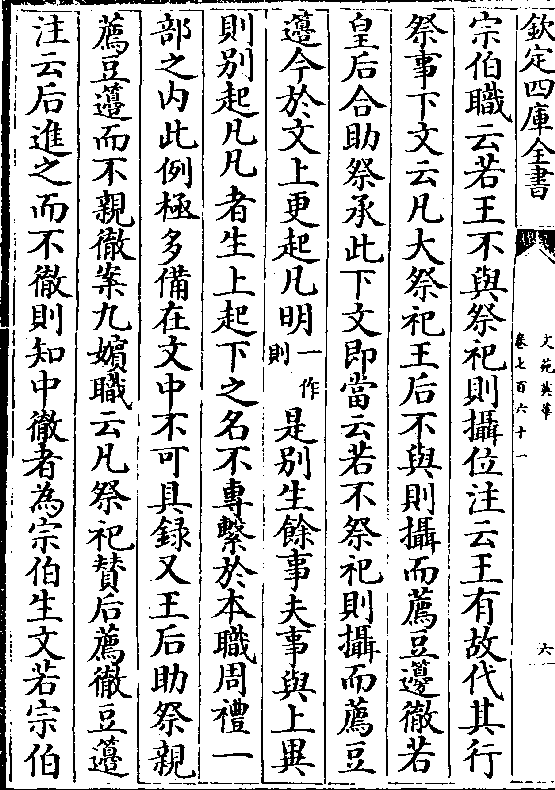 欽定四庫全書
文苑英華
卷七百六十一
六
宗伯職云若王不與祭祀則攝位注云王有故代其行
祭事下文云凡大祭祀王后不與則攝而薦豆籩徹若
皇后合助祭承此下文即當云若不祭祀則攝而薦豆
籩今於文上更起凡明一作則是别生餘事夫事與上異
則别起凡凡者生上起下之名不專繫於本職周禮一
部之内此例極多備在文中不可具録又王后助祭親
薦豆籩而不親徹案九嬪職云凡祭祀賛后薦徹豆籩
注云后進之而不徹則知中徹者為宗伯生文若宗伯